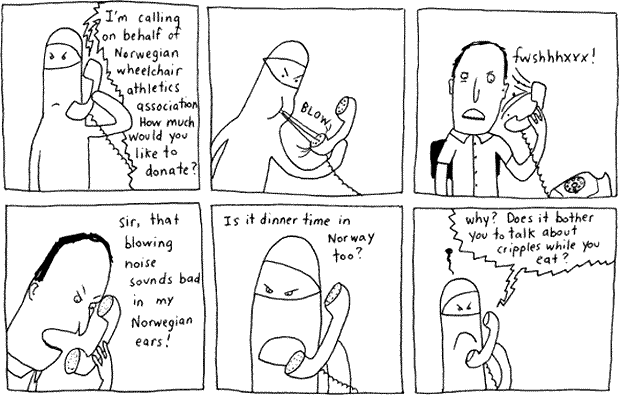 I'm calling
on behalf of
Norwegian
wheelchair
athletics
association
How much
would you
like to
donate?
BLOW
fwshhhxxx!
Sir, that
blowing
noise
sounds bad
in my
Norwegian
ears!
Is it dinner time in
Norway
too?
why? Does it bother
you to talk about
cripples while you
eat?